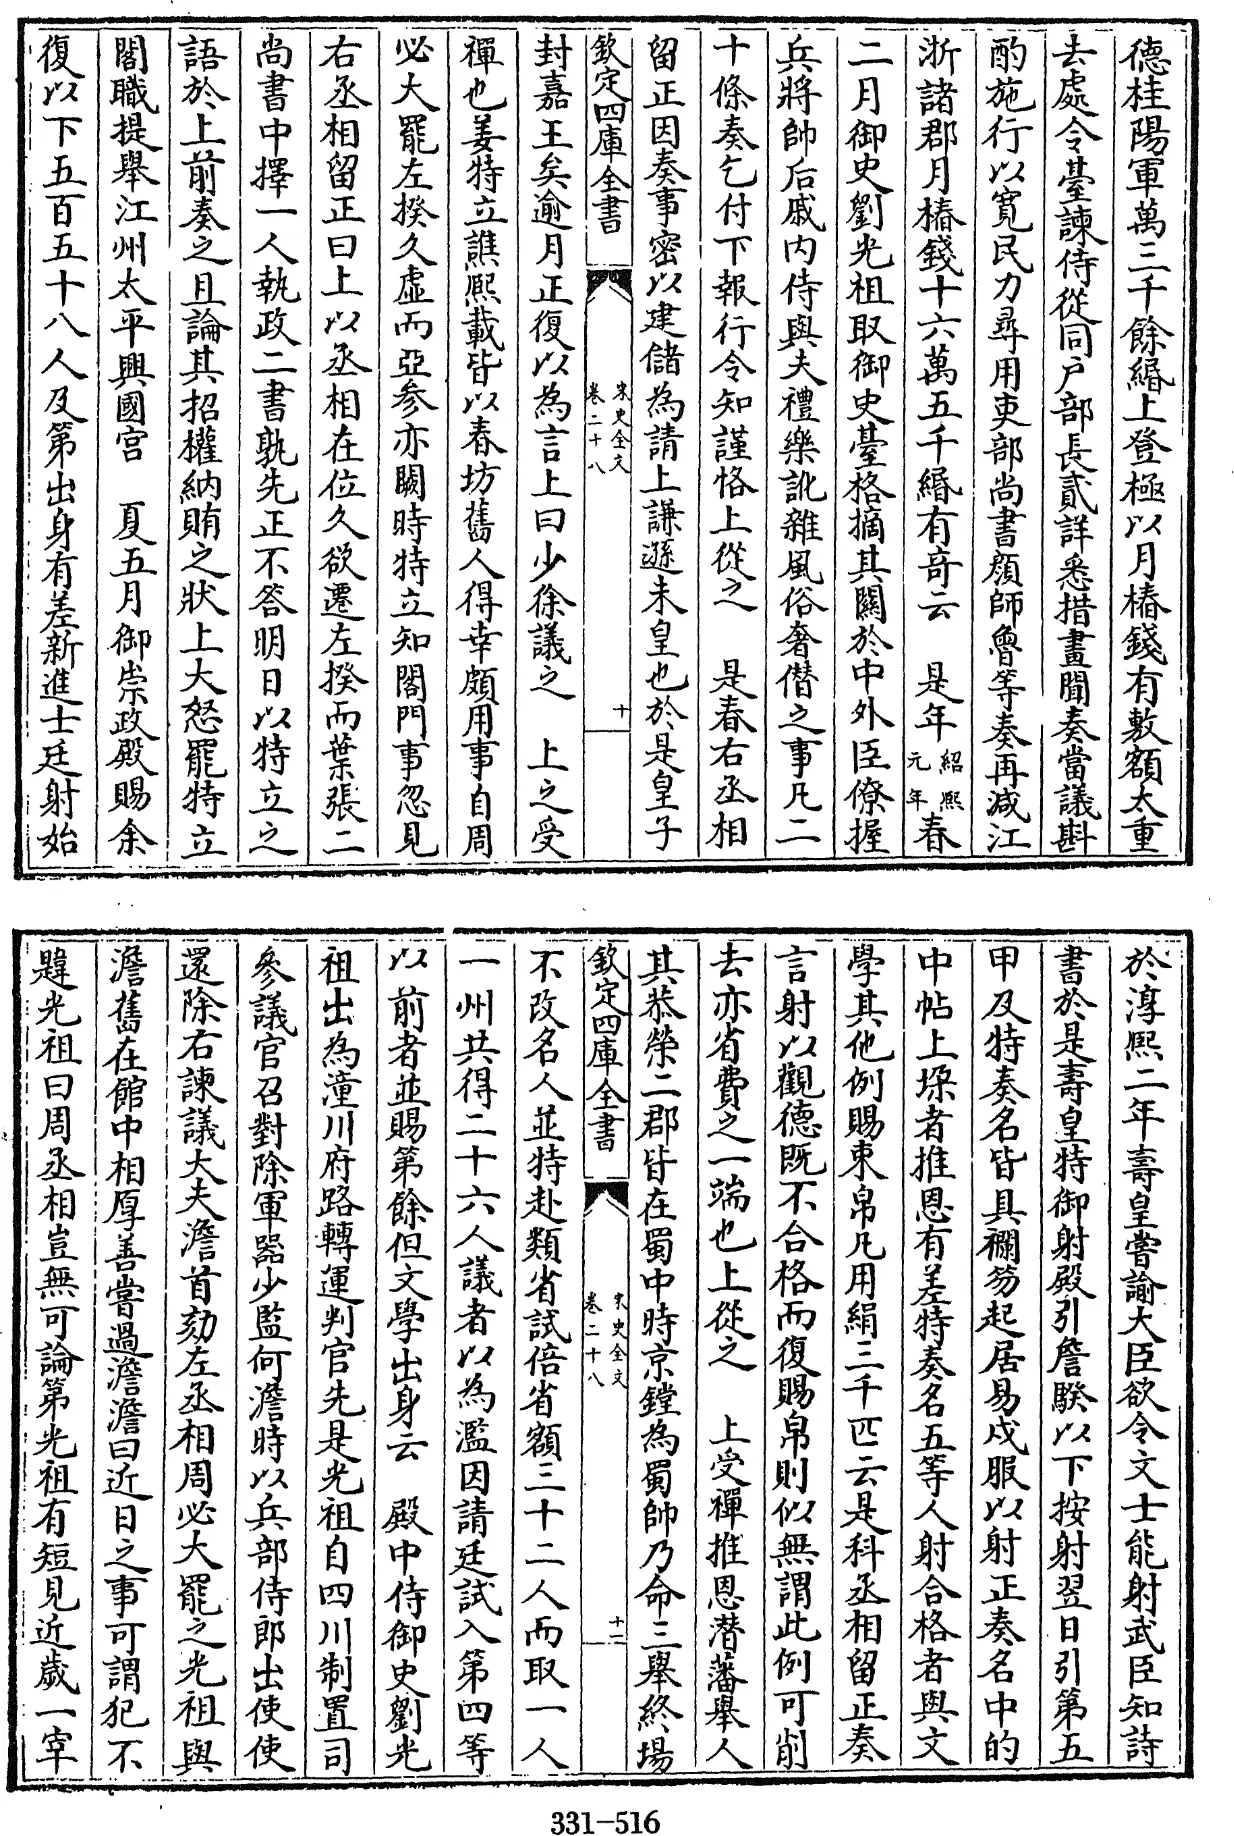 德桂陽軍萬三千餘緡上登極以月樁錢有敷額太重
去處令臺諫侍從同戶部長貳詳悉措畫聞奏當議斟
酌施行以寛民力尋用吏部尚書顔師魯等奏再減江
浙諸郡月樁錢十六萬五千緡有奇云　是年紹熙元年春
二月御史劉光祖取御史臺格摘其關於中外臣僚握
兵將帥后戚内侍與夫禮樂訛雜風俗奢僣之事凡二
十條奏乞付下報行令知謹恪上從之　是春右丞相
留正因奏事密以建儲為請上謙遜未皇也於是皇子
欽定四庫全書　宋史全文卷二十八　十
封嘉王矣逾月正復以為言上曰少徐議之　上之受
禪也姜特立譙熙載皆以春坊舊人得幸頗用事自周
必大罷左揆久虛而亞參亦闕時特立知閤門事忽見
右丞相留正曰上以丞相在位久欲遷左揆而葉張二
尚書中擇一人執政二書孰先正不答明日以特立之
語於上前奏之且論其招權納賄之狀上大怒罷特立
閤職提舉江州太平興國宮　夏五月御崇政殿賜余
復以下五百五十八人及第出身有差新進士廷射始
於淳熙二年壽皇嘗諭大臣欲令文士能射武臣知詩
書於是壽皇特御射殿引詹騤以下按射翌日引第五
甲及特奏名皆具襴笏起居易戎服以射正奏名中的
中帖上垜者推恩有差特奏名五等人射合格者與文
學其他例賜束帛凡用絹三千匹云是科丞相留正奏
言射以觀德既不合格而復賜帛則似無謂此例可削
去亦省費之一端也上從之　上受禪推恩潛藩舉人
其恭榮二郡皆在蜀中時京鏜為蜀帥乃命三舉終場
欽定四庫全書　宋史全文卷二十八　十一
不改名人並特赴類省試倍省額三十二人而取一人
一州共得二十六人議者以為濫因請廷試入第四等
以前者並賜第餘但文學出身云　殿中侍御史劉光
祖出為潼川府路轉運判官先是光祖自四川制置司
參議官召對除軍器少監何澹時以兵部侍郎出使使
還除右諫議大夫澹首劾左丞相周必大罷之光祖與
澹舊在館中相厚善嘗過澹澹曰近日之事可謂犯不
韙光祖曰周丞相豈無可論第光祖有短見近歲一宰
331-516